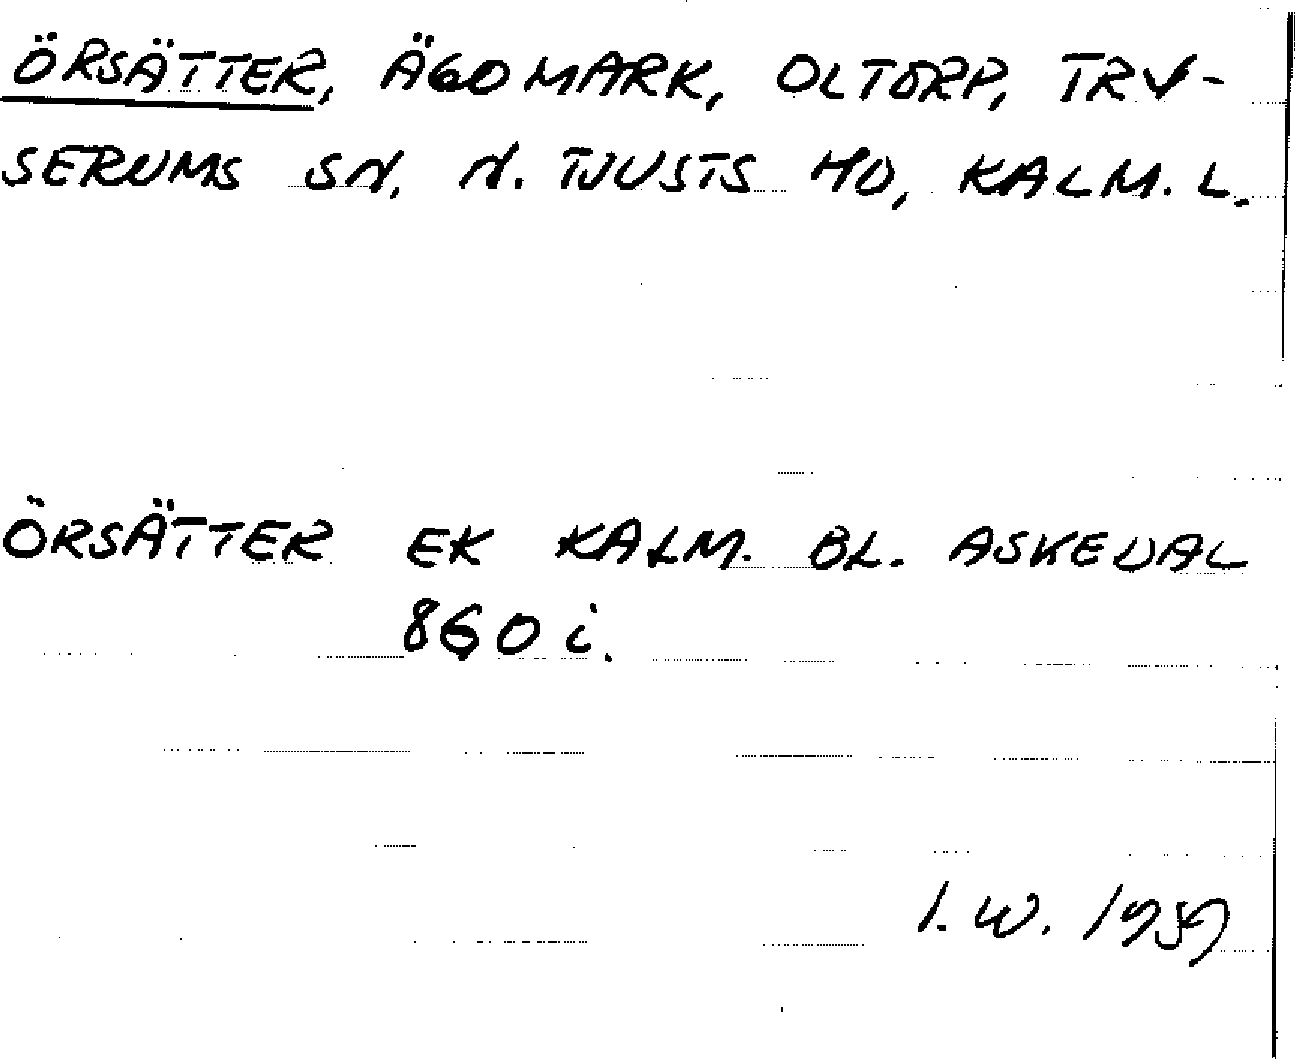 ÖRSÄTTER, ÄGOMARK, OLTORP, TRY-
SERUMS SN, N. TJUSTS HD, KALM. L.
ÖRSÄTTER EK KALM. BL. ASKEDAL
860 i.
I. W. 1959